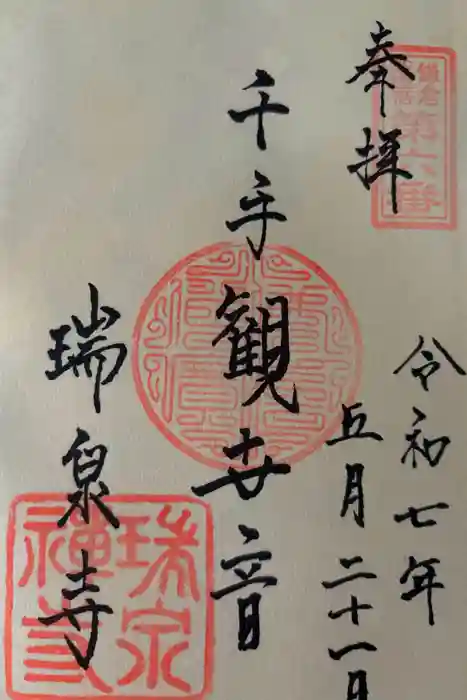 奉拝
鎌倉
第六番
令和七年
五月二十一日
千手観世音
瑞泉寺
瑞泉
禅寺